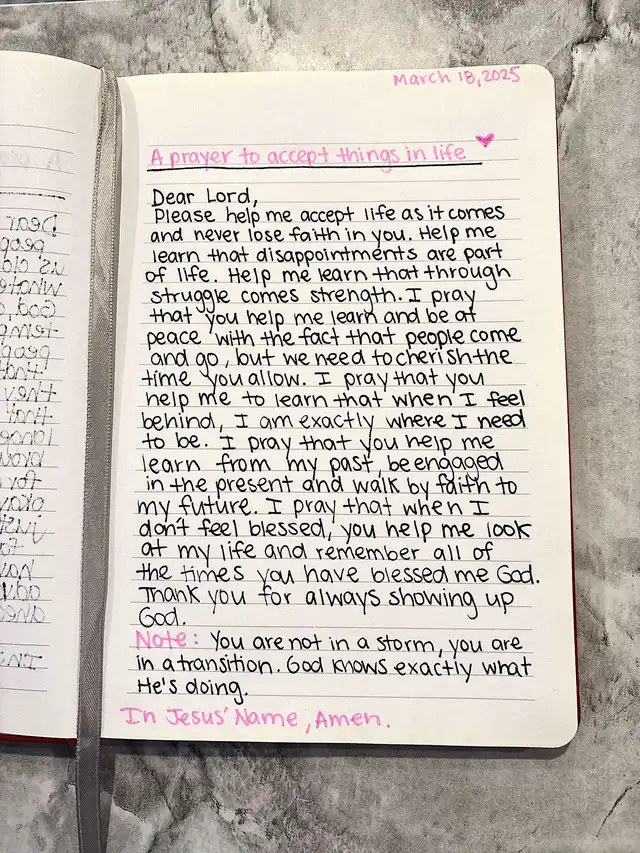 March 18, 2025
A prayer to accept things in life
Dear Lord,
Please help me accept life as it comes
and never lose faith in you. Help me
learn that disappointments are part
of life. Help me learn that through
struggle comes strength. I pray
that you help me learn and be at
peace with the fact that people come
and go, but we need to cherish the
time you allow. I pray that you
help me to learn that when I feel
behind, I am exactly where I need
to be. I pray that you help me
learn from my past, be engaged
in the present and walk by faith to
my future. I pray that when I
don't feel blessed, you help me look
at my life and remember all of
the times you have blessed me God.
Thank you for always showing up
God.
Note: You are not in a storm, you are
in a transition. God knows exactly what
He's doing.
In Jesus' Name, Amen.